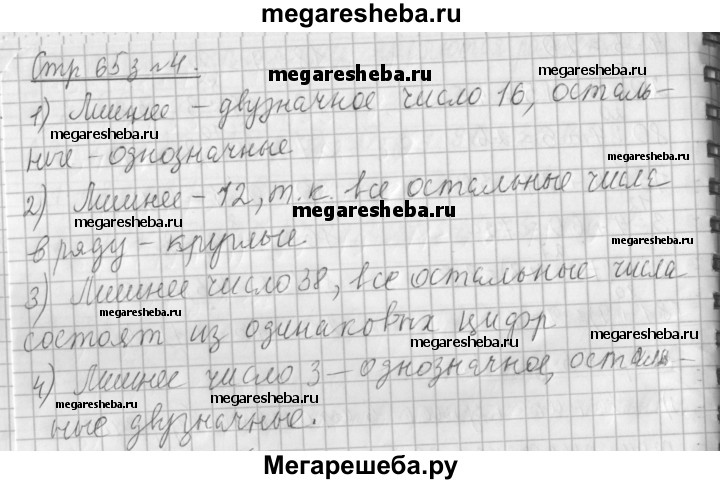 megaresheba.ru
Стр 65 з №4.
megaresheba.ru
megaresheba.ru
1) Лишнее - двузначное число 16, осталь-
megaresheba.ru
ные - однозначные
megaresheba.ru
2) Лишнее - 12, т.к. все остальные числа
megaresheba.ru
megaresheba.ru
в ряду - круглые.
megaresheba.ru
3) Лишнее число 38, все остальные числа
megaresheba.ru
состоят из одинаковых цифр
megaresheba.ru
megaresheba.ru
4) Лишнее число 3 - однозначное, осталь-
megaresheba.ru
megaresheba.ru
ные двузначные.
Мегарешеба.ру